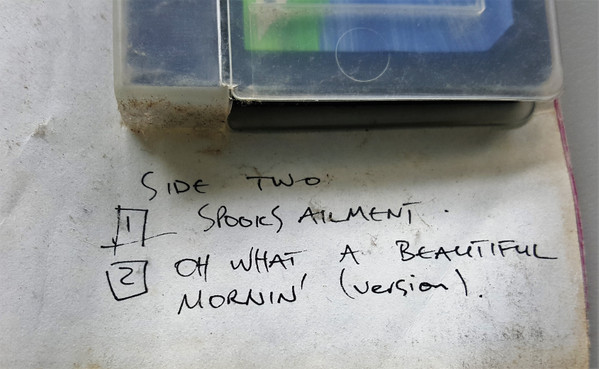 SIDE TWO
1 SPOOKS AILMENT.
2 OH WHAT A BEAUTIFUL
MORNIN' (version).